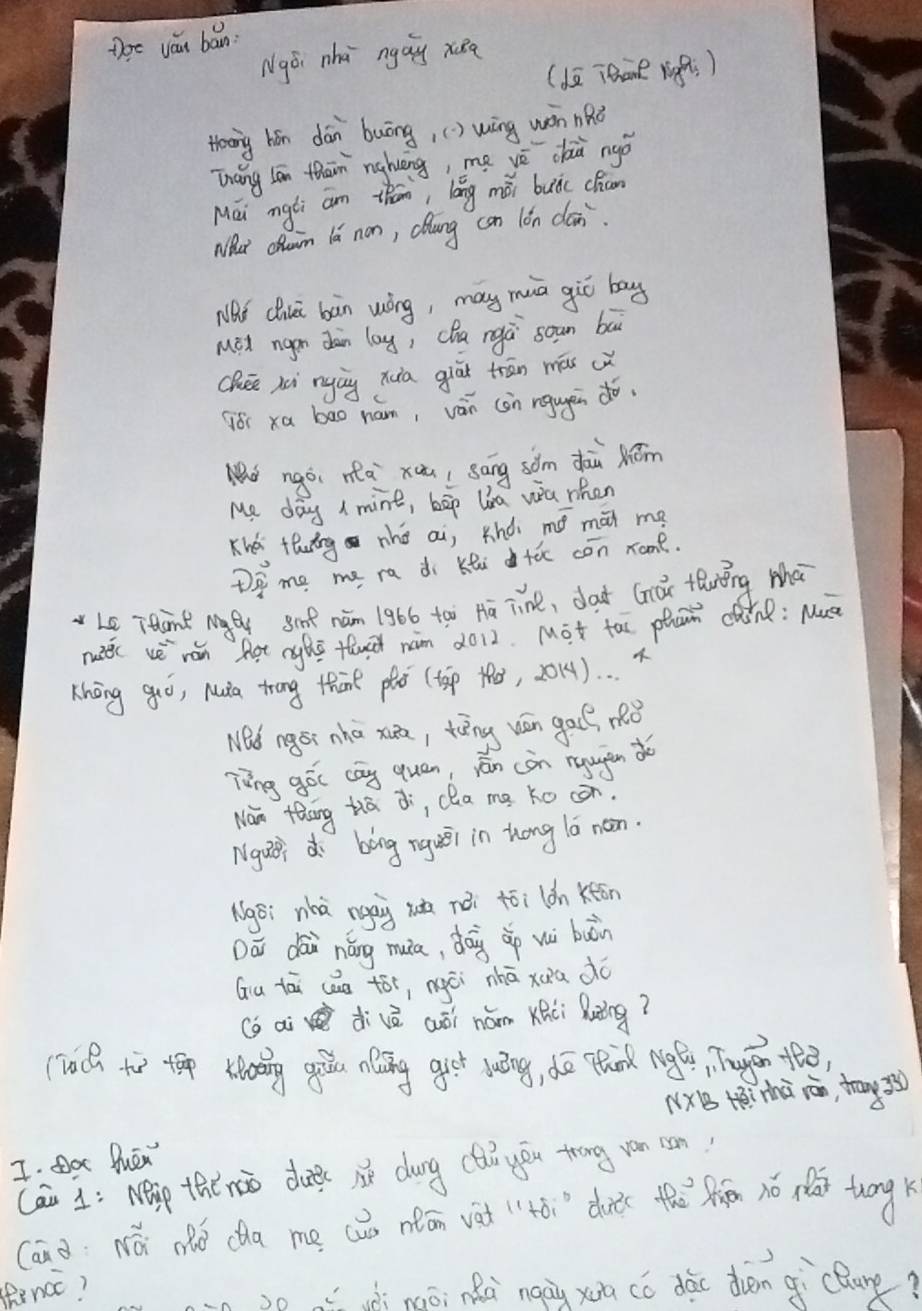 Đọc văn bản:
Ngôi nhà ngày xưa
(Lê Thành Nghị)
Hoàng hôn dần buông, (.) vùng vườn nhỏ
Trăng lên thềm nghiêng, mẹ về đầu ngõ
Mái ngói âm thầm, lắng mỗi bước chân
Như chùm lá non, chúng con lớn dần.
Nhớ chiếc bàn vuông, mấy mùa gió bay
Một ngọn đèn lay, cha ngồi soạn bài
Chiếc ngày xưa giắt trên mái cũ
Tôi xa bao năm, vẫn còn nguyên đó.
Nhớ ngôi nhà xưa, sáng sớm đầu hôm
Mẹ dậy 1 mình, bếp lửa vừa nhen
Khói thương nhớ ai, khói mờ mắt mẹ
Để mẹ mẹ ra đi khi tóc còn xanh.
* Lê Thành Nghị sinh năm 1966 tại Hà Tĩnh, đạt Giải thưởng Nhà
nước về văn học nghệ thuật năm 2012. Một tác phẩm chính: Mùa
không gió, Mưa trong thành phố (tập thơ, 2014)... *
Nhớ ngôi nhà xưa, từng viên gạch nhỏ
Từng gốc cây quen, vẫn còn nguyên đó
Năm tháng trôi đi, cha mẹ ko còn.
Người đi bóng người in trong lá non.
Ngôi nhà ngày xưa nơi tôi lớn khôn
Dãi dầu nắng mưa, đầy ắp vui buồn
Gia tài của tôi, ngôi nhà xưa đó
Có ai đi về cuối năm khói hương?
(Trích từ tập Khoảng giữa những giọt sương, Lê Thành Nghị, Tuyển thơ,
NXB Hội nhà văn, trang 33)
I. Đọc hiểu
Câu 1: Nhịp thơ nào được sử dụng chủ yếu trong văn bản?
Câu 2: Nỗi nhớ cha mẹ của nhân vật "tôi" được thể hiện rõ nhất trong k
thơ nào?
với ngôi nhà ngày xưa có đặc điểm gì chung?